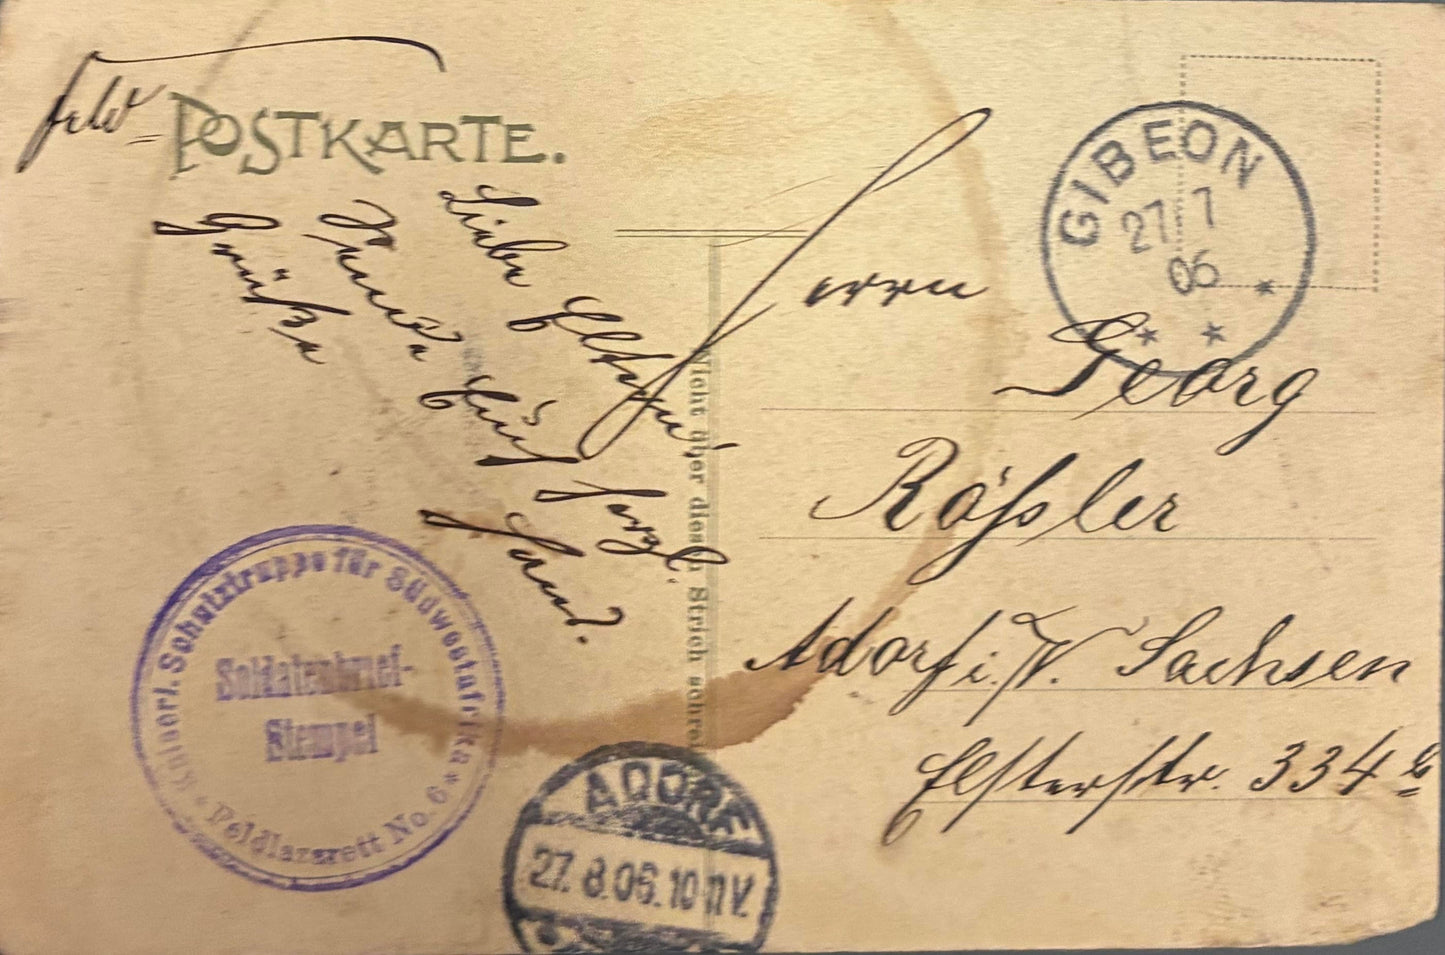 Feld-
POSTKARTE.
GIBEON
27 7
06
Liebe Eltern!
Sende Euch herzl.
Grüße
Herrn
Georg
Rößler
Adorf i. V. Sachsen
Elsterstr. 334 b
Nicht über diesen Strich schrei
Kaiserl. Schutztruppe für Südwestafrika * Feldlazarett No. 6 *
Soldatenbrief-
Stempel
ADORF
27. 8. 06. 10-11 V.